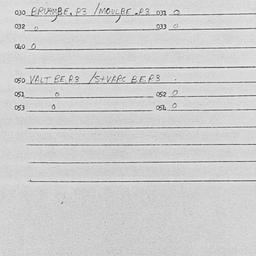 030 BRVAMBE.R3 /MOVLBE.R3 031 0
032 0 033 0
040 0
050 VALT BE.R3 /S+VARC BE.R3
051 0 052 0
053 0 054 0